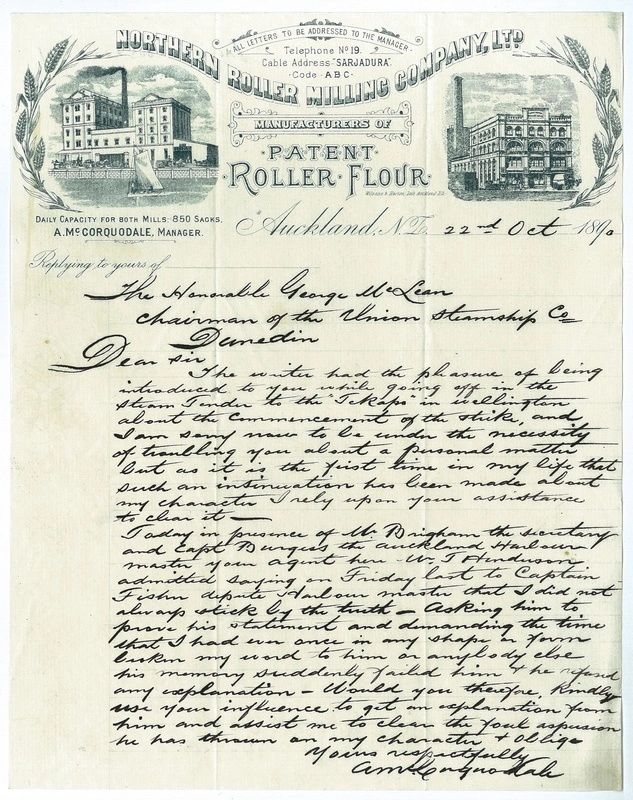 ALL LETTERS TO BE ADDRESSED TO THE MANAGER
Telephone No 19.
Cable Address "SARJADURA".
Code · ABC ·
NORTHERN ROLLER MILLING COMPANY, LTD
MANUFACTURERS OF
· PATENT ·
· ROLLER · FLOUR ·
DAILY CAPACITY FOR BOTH MILLS. 850 SACKS.
A. McCORQUODALE, MANAGER.
Auckland, N.Z. 22nd Oct 1890
Replying to yours of
The Honorable George McLean
Chairman of the Union Steamship Co
Dunedin
Dear Sir
The writer had the pleasure of being
introduced to you while going off in the
Steam Tender to the "Tekapo" in Wellington
about the Commencement of the strike, and
I am sorry now to be under the necessity
of troubling you about a personal matter
but as it is the first time in my life that
such an insinuation has been made about
my character I rely upon your assistance
to clear it —
Today in presence of Mr Brigham the secretary
and Capt Burgess the Auckland Harbour
master your agent here Mr T Henderson
admitted saying on Friday last to Captain
Fisher depute Harbour master that I did not
always stick by the truth — Asking him to
prove his statement and demanding the time
that I had ever once in any shape or form
broken my word to him or anybody else
his memory suddenly failed him & he refused
any explanation — Would you therefore, kindly
use your influence to get an explanation from
him and assist me to clear the foul aspersion
he has thrown on my character & oblige
Yours respectfully
A McCorquodale